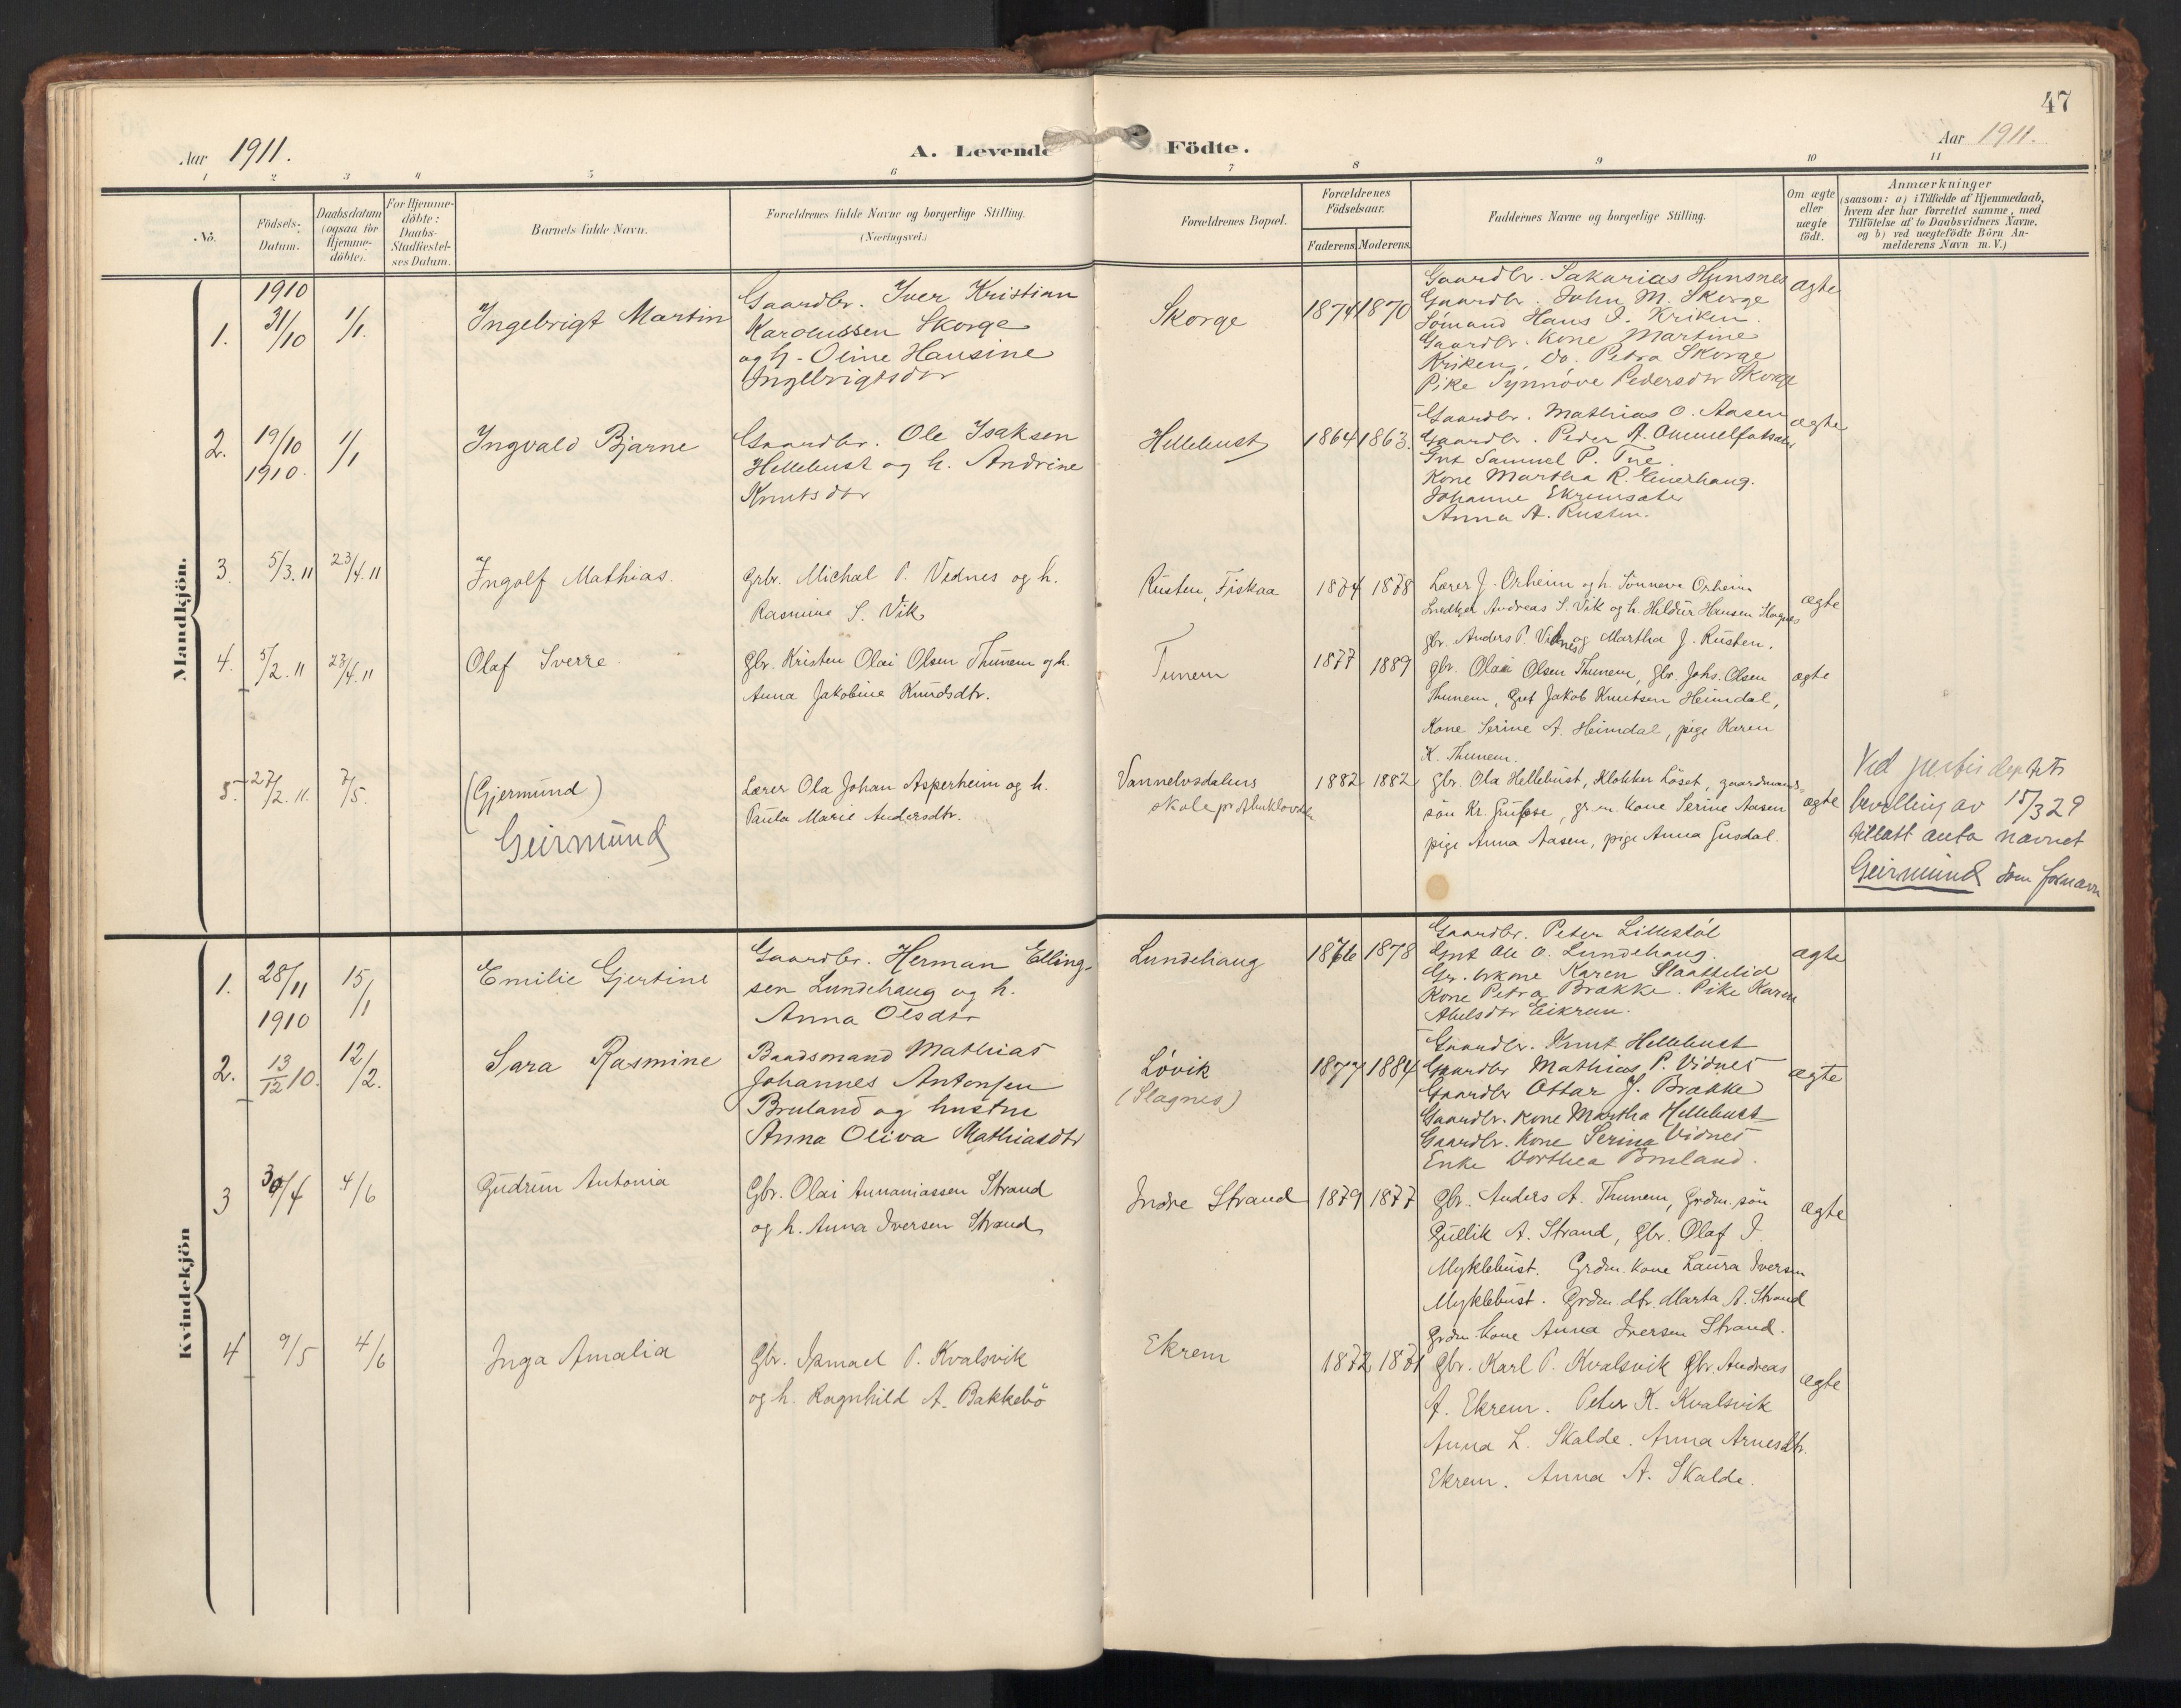 47
Aar 1911.
A. Levende Födte.
Aar 1911.
1 2 3 4 5 6 7 8 9 10 11
No.
Födsels-Datum.
Daabsdatum (ogsaa for Hjemmedöbte).
For Hjemmedöbte: Daabs-Stadfæstelses Datum.
Barnets fulde Navn.
Forældrenes fulde Navne og borgerlige Stilling. (Næringsvei.)
Forældrenes Bopæl.
Forældrenes Födselsaar.
Faderens. Moderens.
Faddernes Navne og borgerlige Stilling.
Om ægte eller uægte födt.
Anmærkninger
(saasom: a) i Tilfælde af Hjemmedaab,
hvem der har forrettet samme, med
Tilföielse af to Daabsvidners Navne,
og b) ved uægtefödte Börn An-
melderens Navn m. V.)
Mandkjön.
1.
1910
31/10
1/1.
Ingebrigt Martin
Gaardbr. Iver Kristian
Karolussen Skorge
og h. Oline Hansine
Ingebrigtsdtr
Skorge
1874 1870
Gaardbr. Sakarias Hunsnes
Gaardbr. John M. Skorge
Sömand Hans I. Kriken.
Gaardbr. Kone Martine
Kriken, Do. Petra Skorge
Pike Synnöve Pedersdtr Skorge
ægte
2.
19/10
1910.
1/1
Ingvald Bjarne
Gaardbr. Ole Isaksen
Hellebust og h. Andrine
Knutsdtr
Hellebust
1864 1863.
Gaardbr. Mathias O. Aasen
Gaardbr. Peder A.
Gut Samuel P. Tue.
Kone Martha R.
Johanne Ekremsæter
Anna A. Rusten.
ægte
3.
5/3.11
23/4.11
Ingolf Mathias.
Grbr. Michal P. Vidnes og h.
Rasmine S. Vik
Rusten, Fiskaa
1874 1878
Lærer J. Orheim og h. Sönneva Orheim
Andreas S. Vik og h. Hildur Hansen
gbr. Anders P. Vidnes og Martha J. Rusten.
ægte
4.
5/2.11
23/4.11
Olaf Sverre.
Gbr. Kristen Olai Olsen Thunem og h.
Anna Jakobine Knudsdtr.
Tunem
1877 1889
gbr. Olai Olsen Thunem, gbr. Johs. Olsen
Thunem, Gut Jakob Knutsen Heimdal,
Kone Serine A. Heimdal, pige Karen
K. Thunem.
ægte
5.
27/2.11.
7/5.
(Gjermund)
Geirmund
Lærer Ola Johan Asperheim og h.
Paula Marie Andersdtr.
Vannelvsdalens
skole
1882 1882
gbr. Ola Hellebust, Klokker Löset, gaardmands-
sön Kr. , gr.m. kone Serine Aasen
pige Anna Aasen, pige Anna Gusdal.
ægte
Ved justisdeptets
bevilling av 15/3 29
tillatt anta navnet
Geirmund som fornavn
Kvindekjön
1.
28/11
1910
15/1
Emilie Gjertine
Gaardbr. Herman Elling-
sen Lundehaug og h.
Anna Olsdtr
Lundehaug
1876 1878
Gaardbr. Peter Lillestöl
Gut Ole O. Lundehaug.
Gbr. kone Karen Slaattelid
Kone Petra Brække. Pike Karen
Abelsdtr Eikrem.
ægte
2.
13/12 10.
12/2.
Sara Rasmine
Baadsmand Mathias
Johannes Antonsen
Bruland og hustru
Anna Oliva Mathiasdtr
Lövik
(Slagnes)
1877 1884
Gaardbr. Knut Hellebust
Gaardbr Mathias P. Vidnes
Gaardbr Ottar J. Brække
Gaardbr. Kone Martha Hellebust
Gaardbr. Kone Serina Vidnes
Enke Dorthea Bruland.
ægte
3
30/4
4/6
Gudrun Antonia
Gbr. Olai Annaniassen Strand
og h. Anna Iversen Strand
Indre Strand
1879 1877
Gbr. Anders A. Thunem, Grdm. sön
Gullik A. Strand, Gbr. Olaf I.
Myklebust. Grdm. kone Laura Iversen
Myklebust. Grdm. dtr. Marta A. Strand
Grdm. kone Anna Iversen Strand.
ægte
4
9/5
4/6
Inga Amalia
Gbr. Ismael P. Kvalsvik
og h. Ragnhild A. Bakkebö
Ekrem
1872 1871
Gbr. Karl P. Kvalsvik Gbr. Andreas
A. Ekrem. Peter K. Kvalsvik
Anna L. Skalde. Anna Arnesdtr.
Ekrem. Anna A. Skalde.
ægte